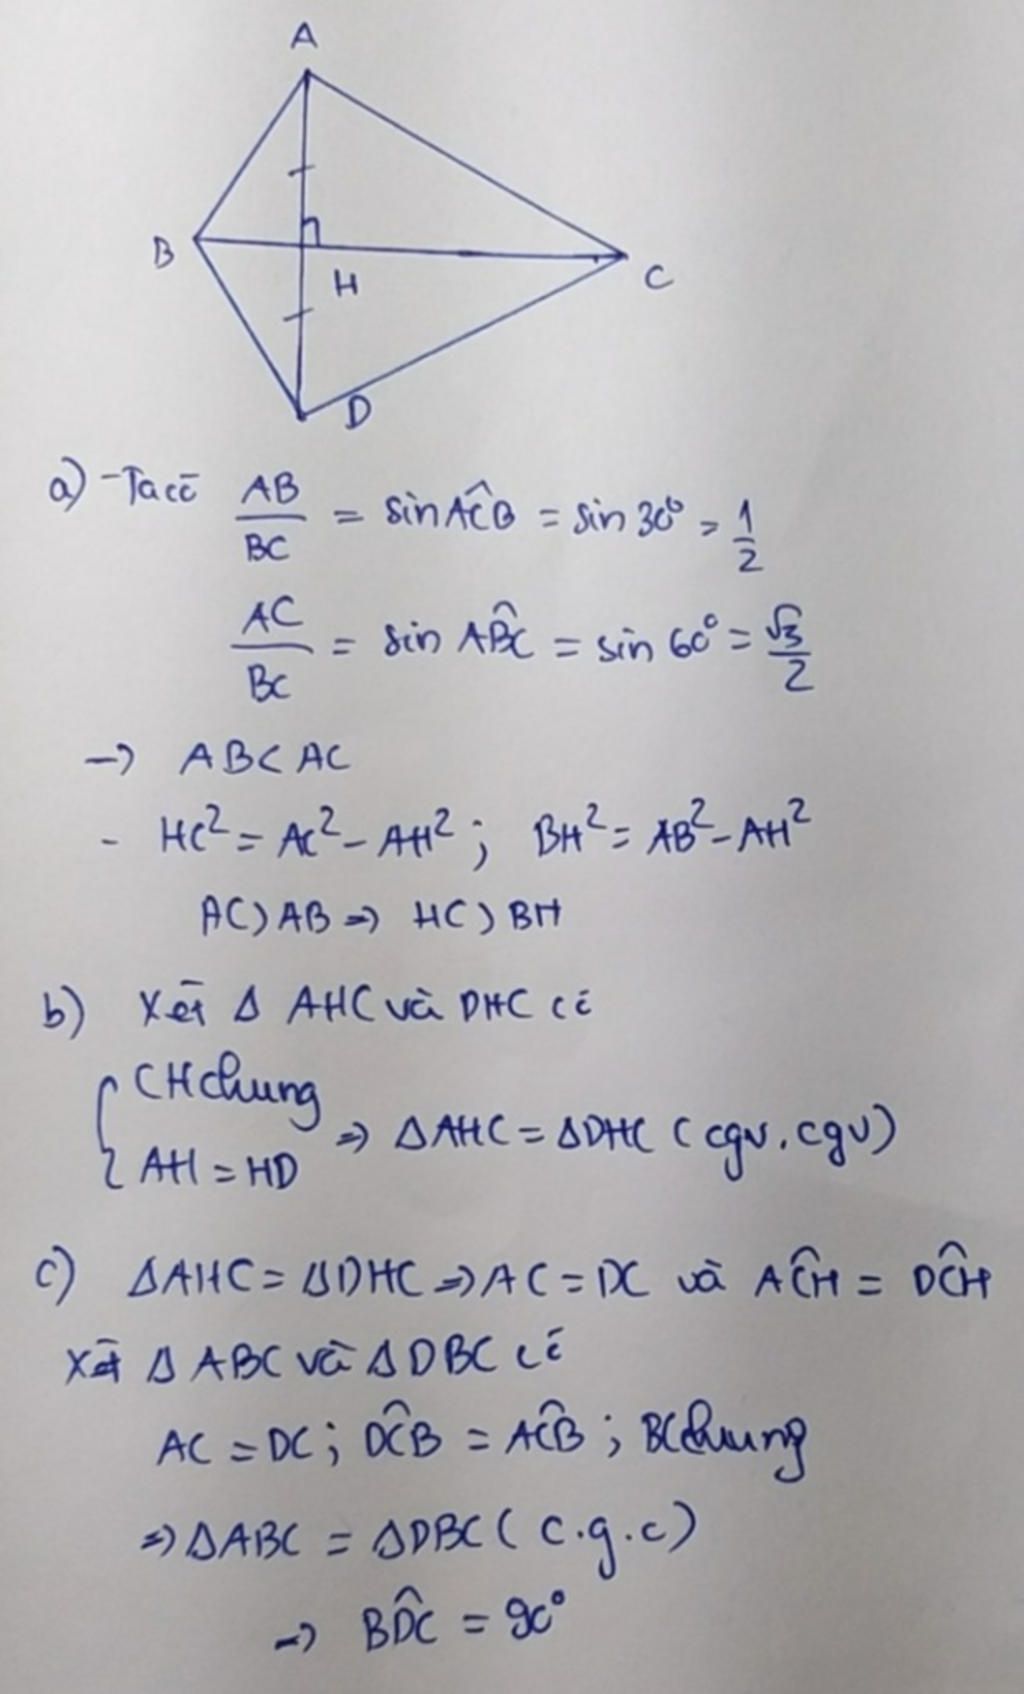 A
B
H
C
D
a) - Ta có AB/BC = sin ACB̂ = sin 30° = 1/2
AC/BC = sin AB̂C = sin 60° = √3/2
→ AB < AC
- HC² = AC² - AH² ; BH² = AB² - AH²
AC > AB => HC > BH
b) Xét Δ AHC và DHC có
{ CH chung
AH = HD => ΔAHC = ΔDHC (cgv.cgv)
c) ΔAHC = ΔDHC => AC = DC và AĈH = DĈH
Xét Δ ABC và Δ DBC có
AC = DC ; DĈB = AĈB ; BC chung
=> ΔABC = ΔDBC ( c.g.c )
→ BD̂C = 90°